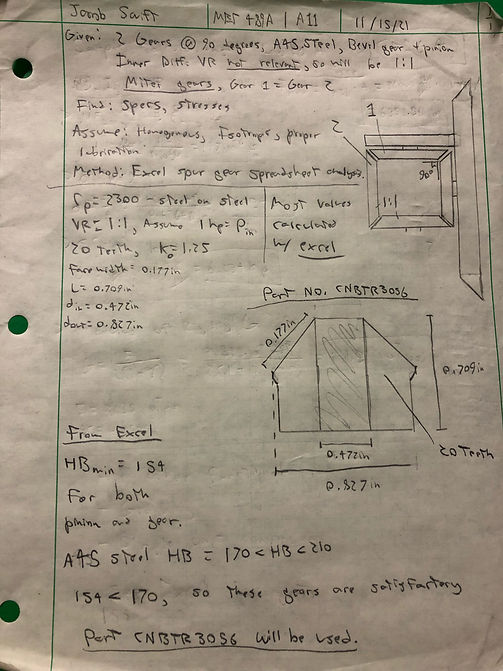 Jacob Swift | MET 489A | A11 | 11/15/21 1
Given: 2 Gears @ 90 degrees, A45 Steel, Bevil gear + pinion
Inner Diff. VR not relevent, so will be 1:1
Miter gears, Gear 1 = Gear 2
Find: Specs, stresses
Assume: Homogenous, Isotropic, proper
lubrication
Method: Excel spur gear spreadsheet analysis.
1
2
90°
1:1
Cp = 2300 - steel on steel
VR = 1:1, Assume 1 hp = Pin
20 Teeth, Ko = 1.25
Face width = 0.177in
L = 0.709in
din = 0.472in
dout = 0.827in
Most values
calculated
w/ excel
Part NO. CNBTR3056
0.177in
0.709in
0.472in
20 Teeth
0.827in
From Excel
HBmin = 154
For both
pinion and gear.
A45 steel HB = 170 < HB < 210
154 < 170, so these gears are satisfactory
Part CNBTR3056 will be used.